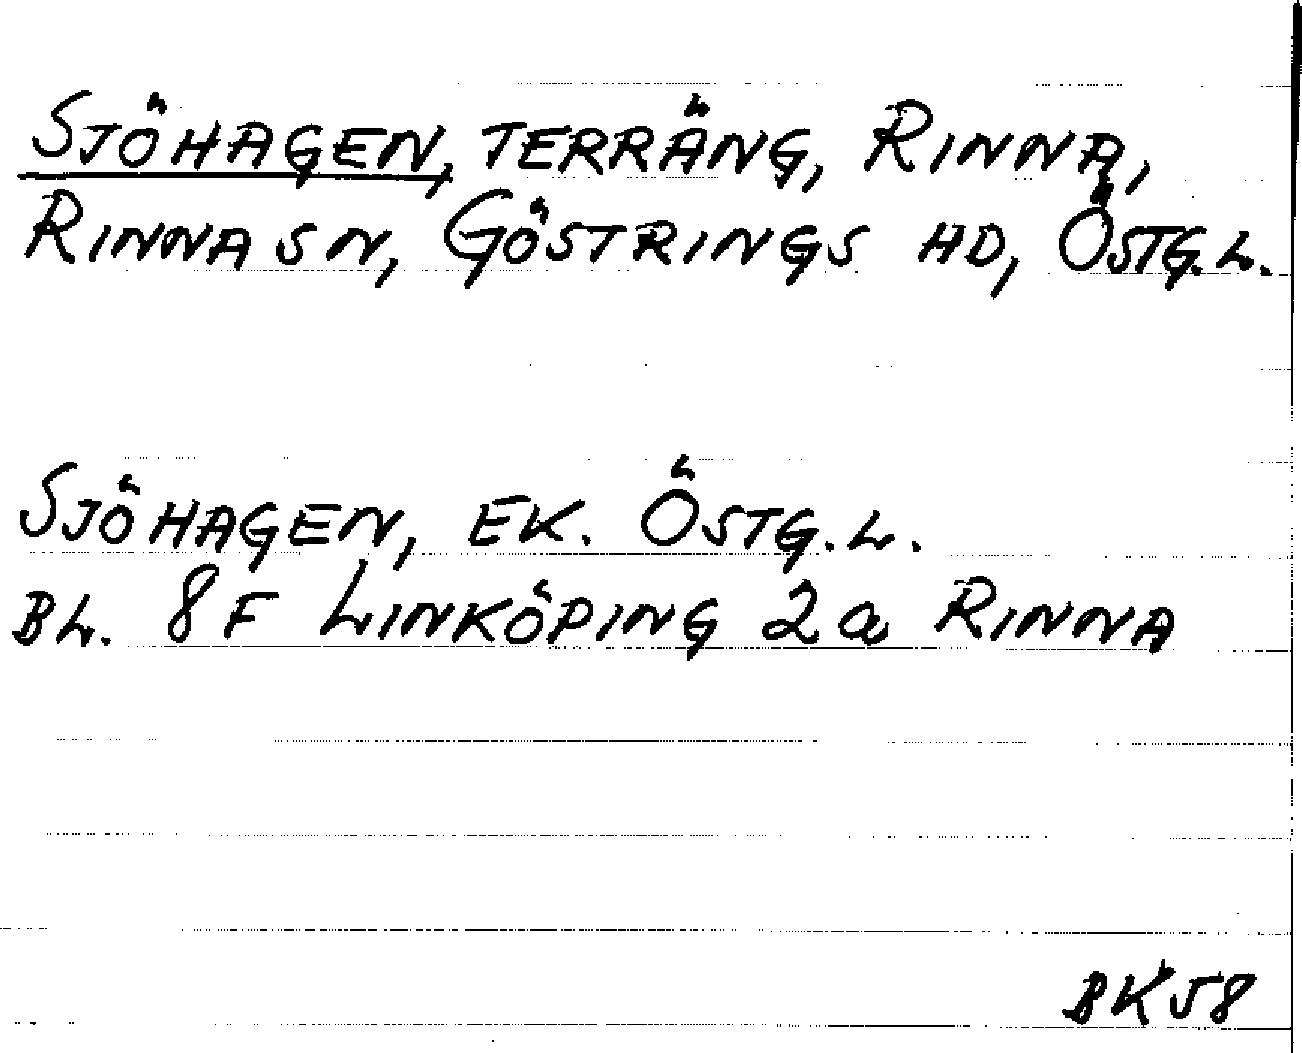 SJÖHAGEN, TERRÄNG, RINNA,
RINNA SN, GÖSTRINGS HD, ÖSTG.L.
SJÖHAGEN, EK. ÖSTG.L.
BL. 8F LINKÖPING 2a RINNA
BK58